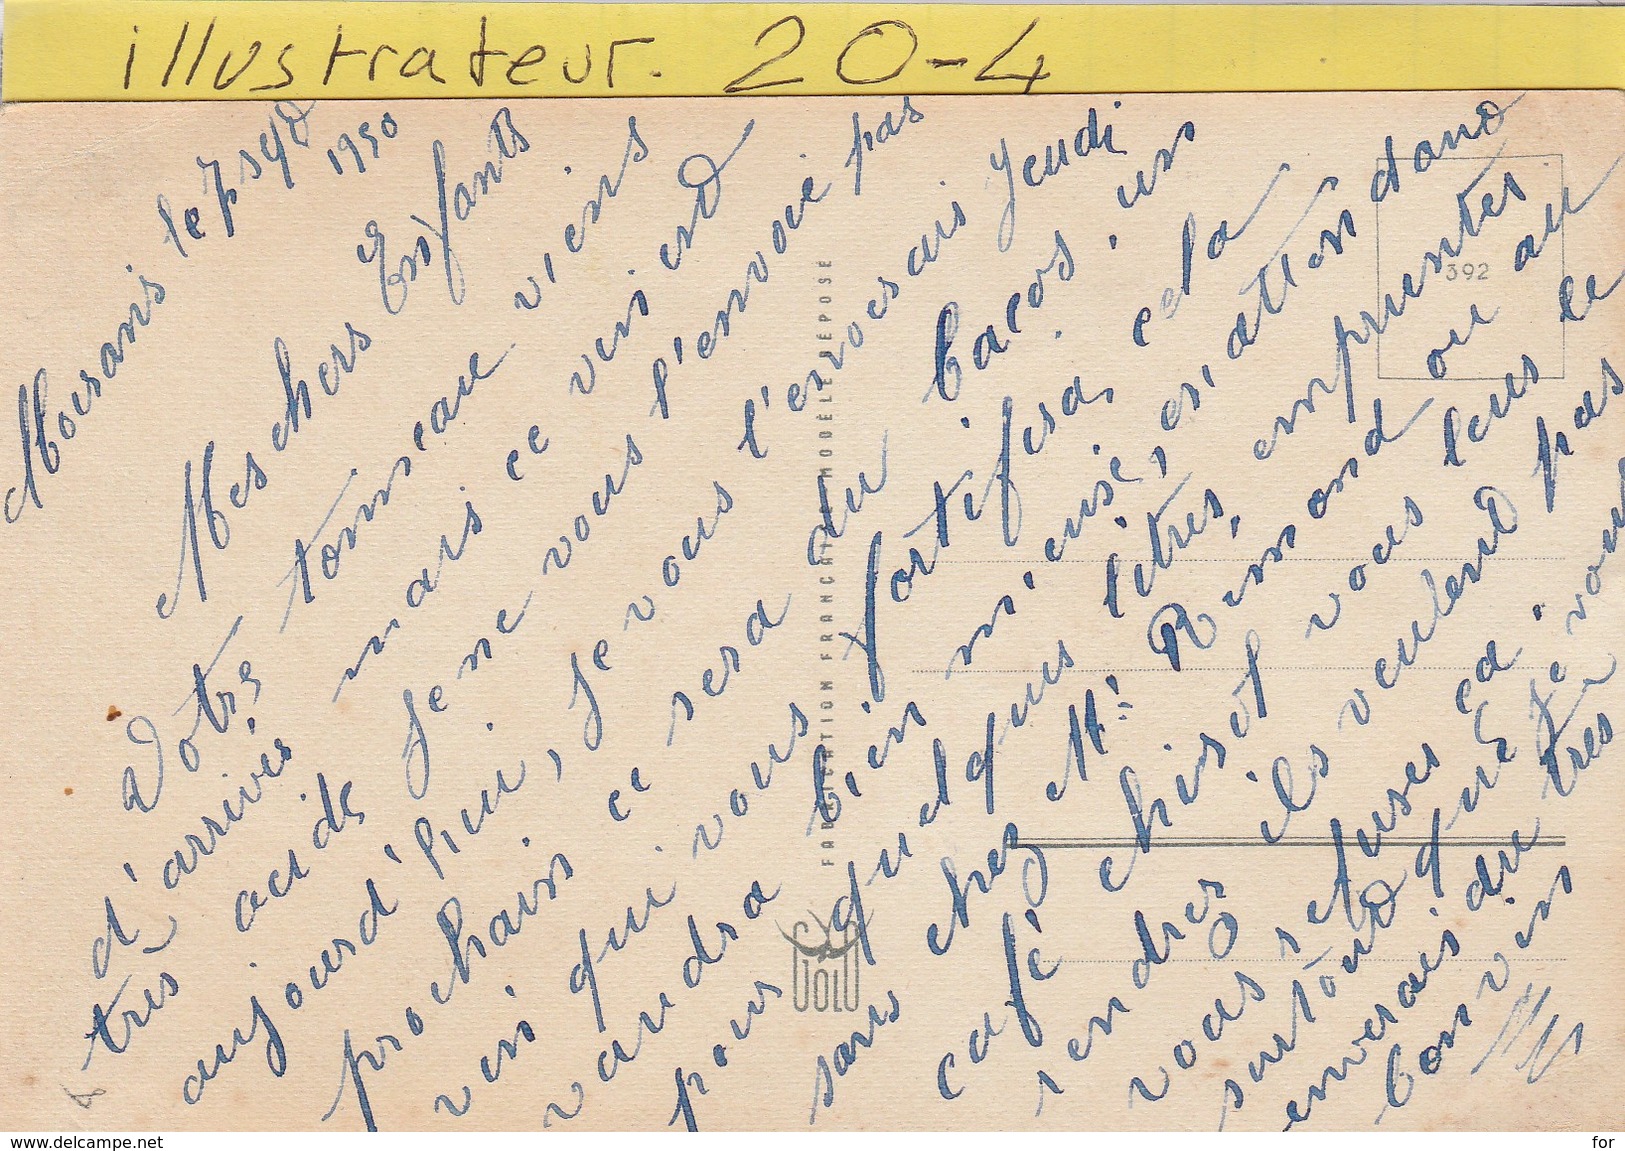 illustrateur. 20-4
Moirans le 7 sept
1950
Mes chers Enfants
Votre tonneau viens
d'arrivés mais ce vin est
très acide Je ne vous l'envoie pas
aujourd'hui, Je vous l'enverais Jeudi
prochain ce sera du bacos. un
vin qui vous fortifera, cela
vaudra bien mieux, en atten dans
pour quelques litres, empruntes
sans chez Mr Rimond ou au
café chisot vous leus le
rendrez ils veulent pas
vous refuses ça.
surtout que Je vous
enverais du tres
bon vin
FABRICATION FRANCAISE MODELE DEPOSE
JOLU
392
www.delcampe.net
for